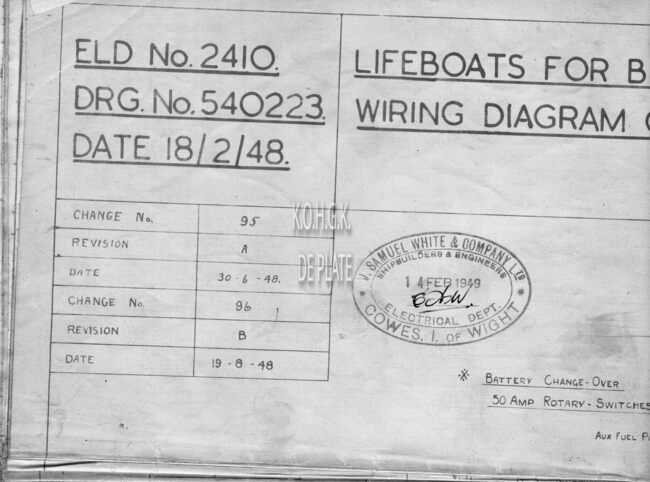 ELD No. 2410.
DRG. No. 540223.
DATE 18/2/48.
LIFEBOATS FOR B
WIRING DIAGRAM
CHANGE No. 95
REVISION A
DATE 30-6-48.
CHANGE No. 96
REVISION B
DATE 19-8-48
K.O.H.G.K.
DE PLATE
* J. SAMUEL WHITE & COMPANY LTD *
SHIPBUILDERS & ENGINEERS
14 FEB 1949
ELECTRICAL DEPT.
COWES, I. OF WIGHT
※ BATTERY CHANGE-OVER
50 AMP ROTARY-SWITCHES
AUX FUEL P